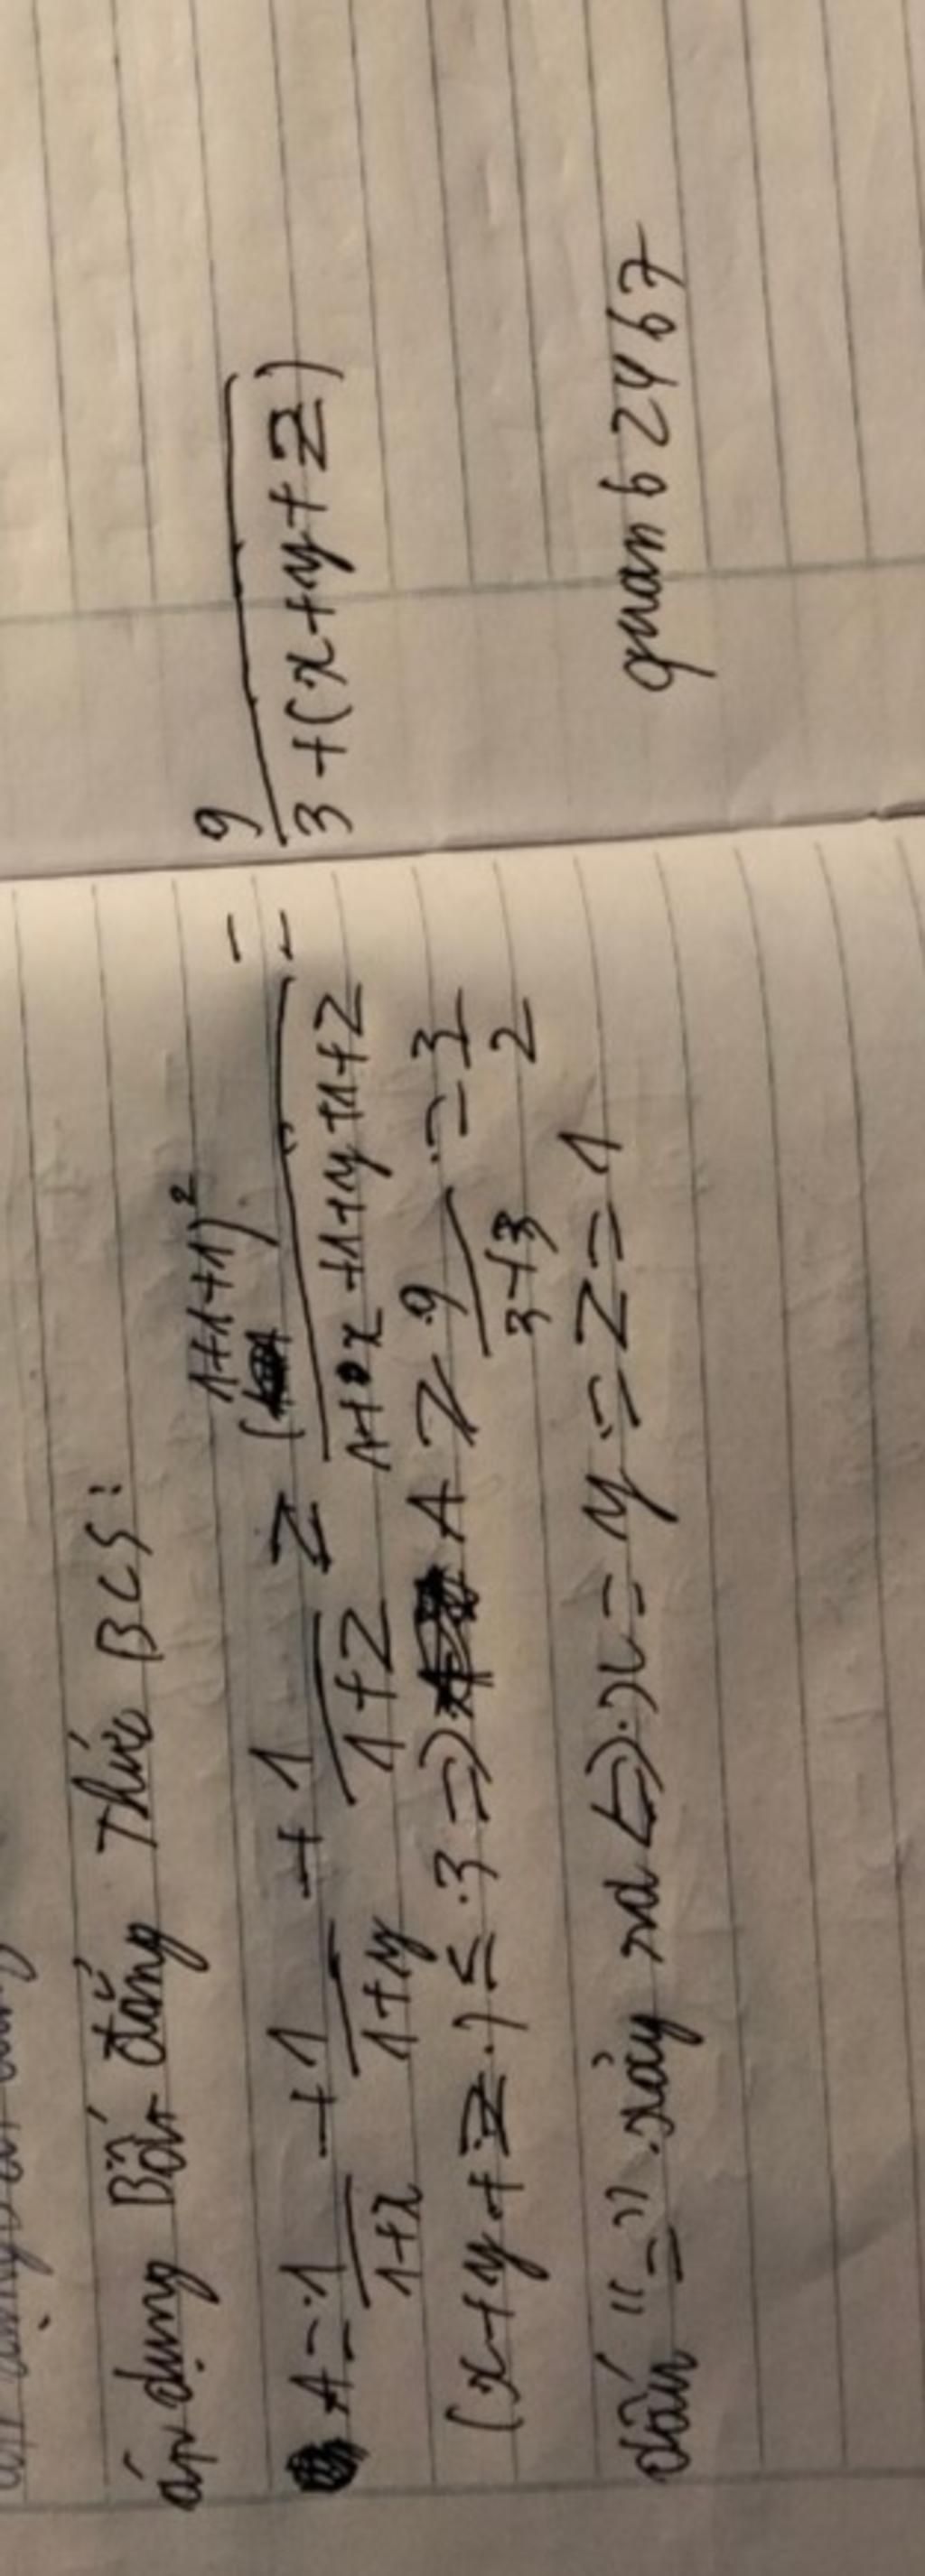 áp dụng Bất đẳng Thức BCS:
A = 1/(1+x) + 1/(1+y) + 1/(1+z) ≥ (1+1+1)²/(1+x+1+y+1+z) = 9/(3+(x+y+z))
(x+y+z) ≤ 3 => A ≥ 9/(3+3) = 3/2
dấu "=" xảy ra <=> x = y = z = 1
quan 62467